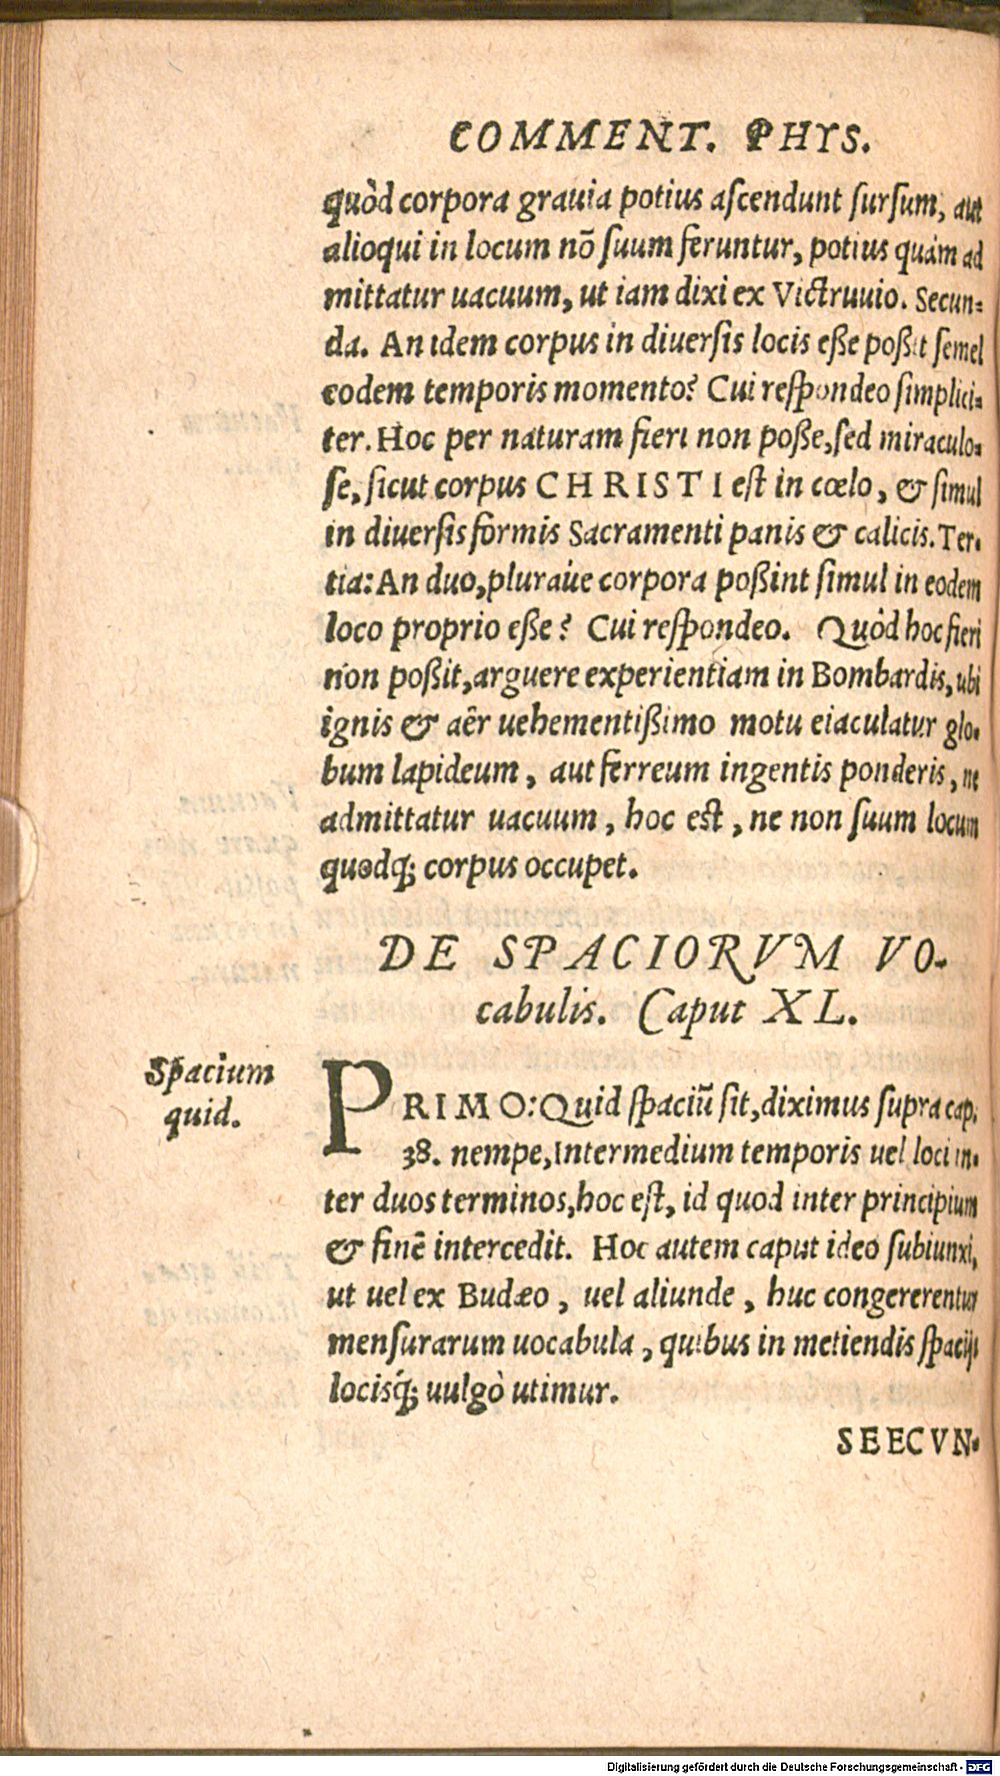 COMMENT. PHYS.
quòd corpora grauia potius ascendunt sursum, aut
alioqui in locum nō suum feruntur, potius quàm ad
mittatur uacuum, ut iam dixi ex Victruuio. Secun-
da. An idem corpus in diuersis locis eße poßit semel
eodem temporis momento? Cui respondeo simplici-
ter. Hoc per naturam fieri non poße, sed miraculo-
se, sicut corpus CHRISTI est in cœlo, & simul
in diuersis formis Sacramenti panis & calicis. Ter-
tia: An duo, pluraúe corpora poßint simul in eodem
loco proprio eße? Cui respondeo. Quòd hoc fieri
non poßit, arguere experientiam in Bombardis, ubi
ignis & aêr uehementißimo motu eiaculatur glo-
bum lapideum, aut ferreum ingentis ponderis, ne
admittatur uacuum, hoc est, ne non suum locum
quodq; corpus occupet.
DE SPACIORVM VO-
cabulis. Caput XL.
Spacium
quid.
PRIMO: Quid spaciū sit, diximus supra cap.
38. nempe, Intermedium temporis uel loci in-
ter duos terminos, hoc est, id quod inter principium
& finē intercedit. Hoc autem caput ideo subiunxi,
ut uel ex Budæo, uel aliunde, huc congererentur
mensurarum uocabula, quibus in metiendis spacijs
locisq́; uulgò utimur.
SEECVN-
Digitalisierung gefördert durch die Deutsche Forschungsgemeinschaft - DFG